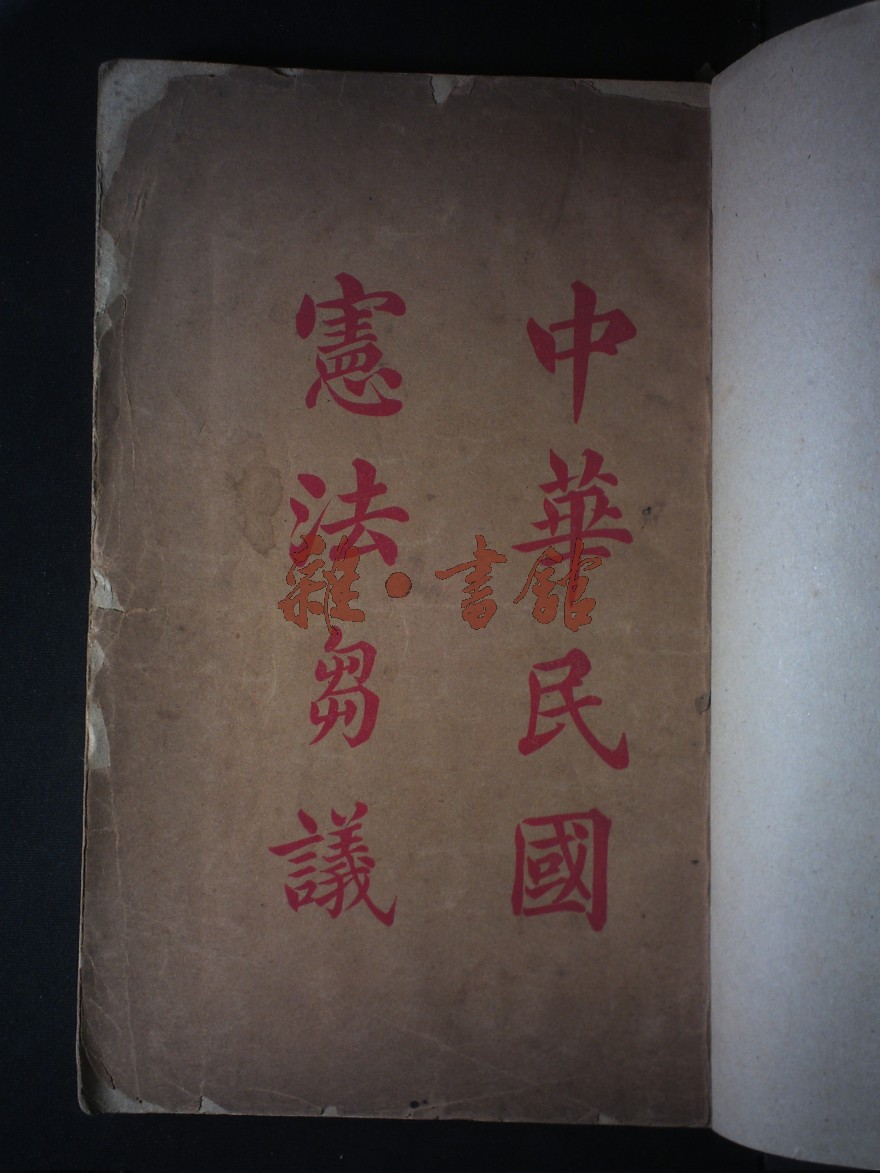 中華民國
憲法芻議
雜·書館